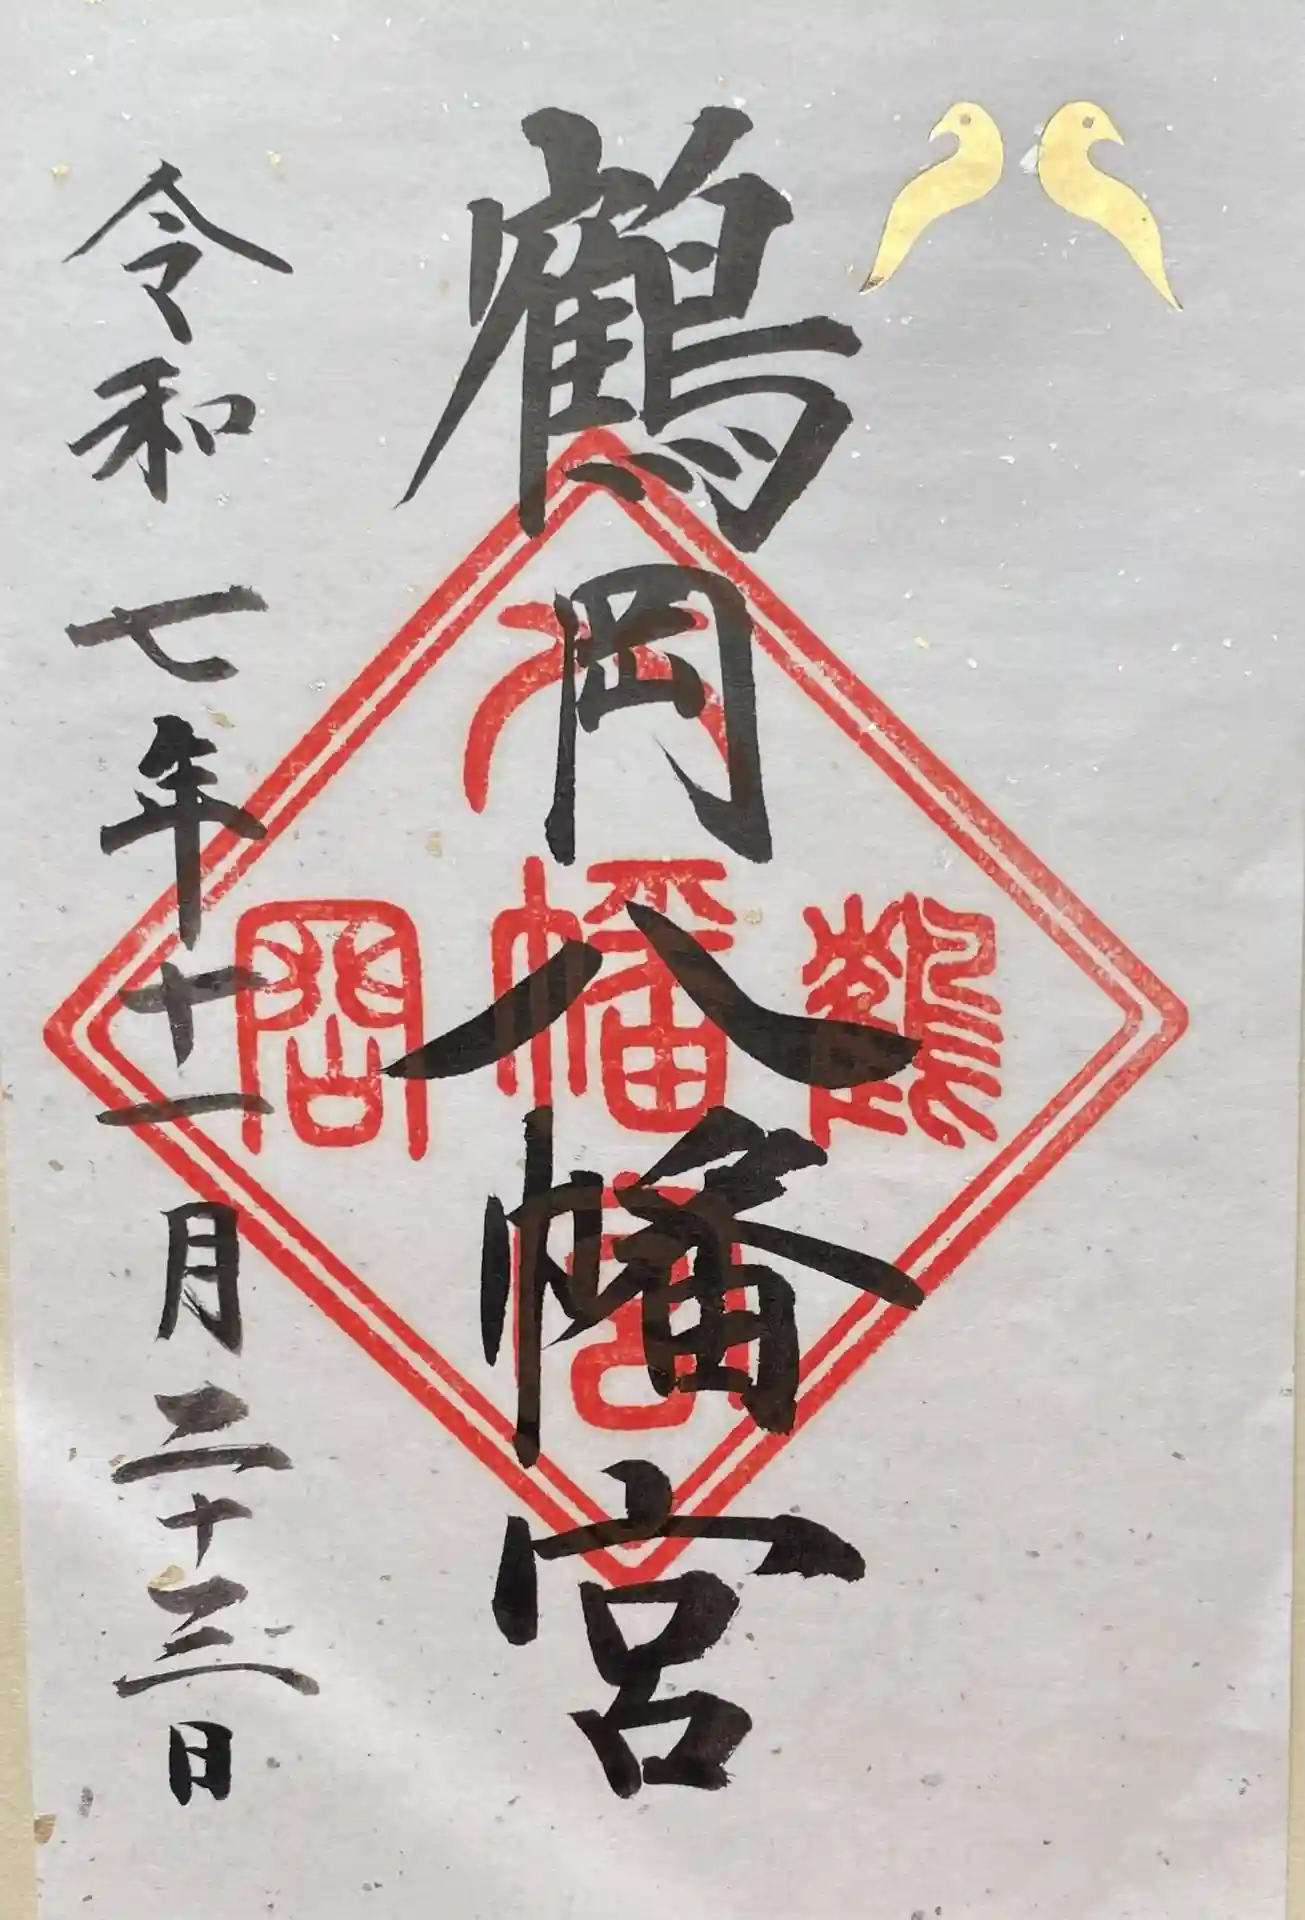 鶴岡八幡宮
令和七年十一月二十三日
八
鶴 幡 岡
宮